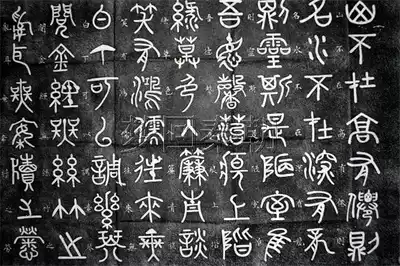 山不在高有僊則
名水不在深有龍
則靈斯是陋室惟
吾德馨苔痕上階
綠草色入簾青談
笑有鴻儒往來無
白丁可以調素琴
閱金經無絲竹之
亂耳無案牘之勞